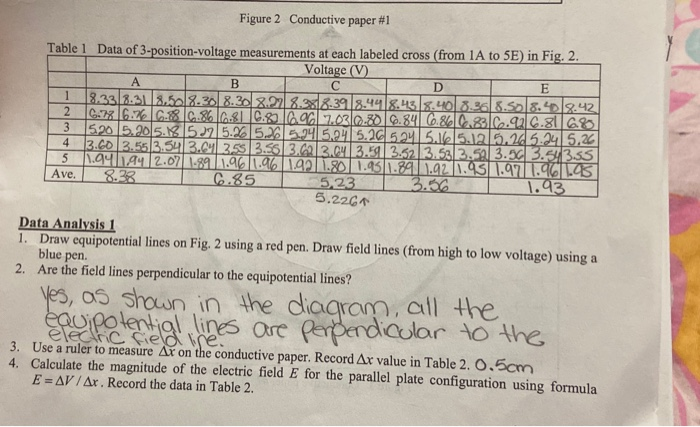 Figure 2 Conductive paper #1
Table 1 Data of 3-position-voltage measurements at each labeled cross (from 1A to 5E) in Fig. 2.
Voltage (V)
A B C D E
1 8.33 8.31 8.50 8.30 8.30 8.27 8.38 8.39 8.44 8.43 8.40 8.36 8.50 8.40 8.42
2 6.78 6.76 6.88 6.86 6.81 6.82 6.96 7.03 6.80 6.84 6.86 6.83 6.92 6.81 6.80
3 5.20 5.20 5.18 5.27 5.26 5.26 5.24 5.24 5.26 5.24 5.16 5.12 5.26 5.24 5.26
4 3.60 3.55 3.54 3.64 3.55 3.55 3.62 3.64 3.59 3.52 3.53 3.52 3.56 3.54 3.55
5 1.94 1.94 2.07 1.89 1.96 1.96 1.92 1.80 1.95 1.89 1.92 1.95 1.97 1.96 1.95
Ave. 8.38 6.85 5.23 3.56 1.93
5.226
Data Analysis 1
1. Draw equipotential lines on Fig. 2 using a red pen. Draw field lines (from high to low voltage) using a
blue pen.
2. Are the field lines perpendicular to the equipotential lines?
Yes, as shown in the diagram, all the
equipotential lines are perpendicular to the
electric field line.
3. Use a ruler to measure Δx on the conductive paper. Record Δx value in Table 2. 0.5cm
4. Calculate the magnitude of the electric field E for the parallel plate configuration using formula
E = ΔV / Δx. Record the data in Table 2.